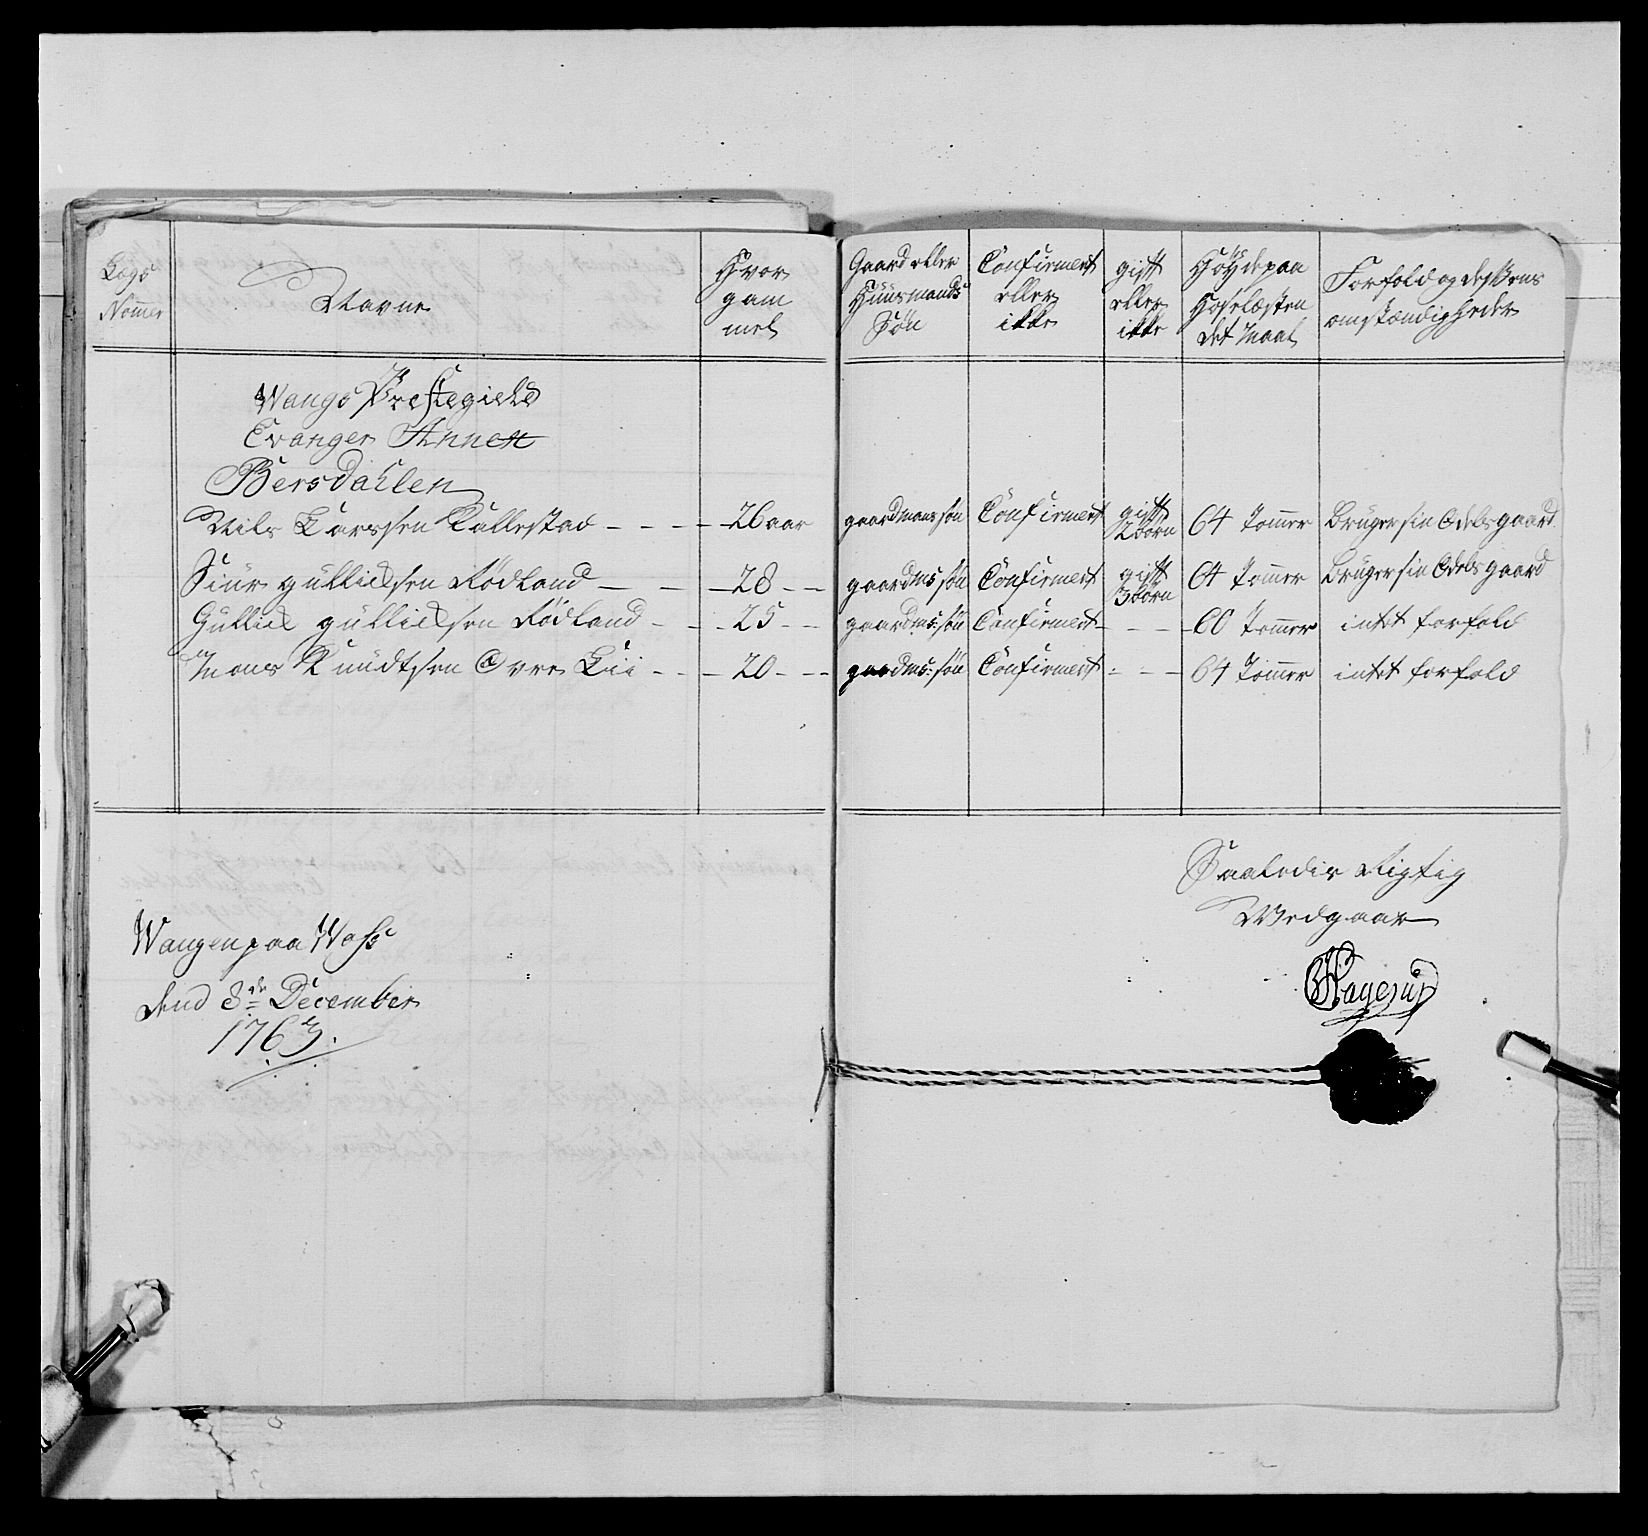 Lægs Nommer | Navne | Hvor gam mel | Gaard eller Huusmands Søn | Confirmert eller ikke | gift eller ikke | Høyde paa Hoselæsten det Maal | Forfald og deslkens omstændigheder
Wangs Præstegield
Evanger Annex
Bersdahlen
Nils Larssen Kallestad - - - - 26 aar | gaardmans søn | Confirmert | gift 2 børn | 64 Tommer | Bruger sin Odels gaard
Siur gulliksen Rødland - - - 28 - - | gaardms søn | Confirmert | gift 3 børn | 64 Tommer | Bruger sin Odels gaard
Gullic gullicksen Rødland - - - 25 - - | gaardms: søn | Confirmert - - - | 60 Tommer | intet forfald
Mons Knudtsen Øvre Lii - - - 20 - - - | gaardms: søn | Confirmert - - - | 64 Tommer | intet forfald
Saaledis Rigtig
Wedgaar
Hagerup
Wangen paa Woss
dend 8de December
1763.